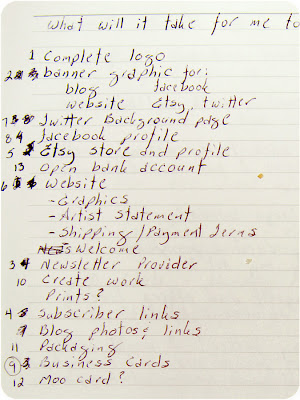 What will it take for me to
1 Complete logo
2 banner graphic for:
blog facebook
website Etsy, twitter
7 Twitter Background page
8 facebook profile
5 Etsy store and profile
13 Open bank account
6 Website
- Graphics
- Artist Statement
- Shipping/Payment Terms
Welcome
3 Newsletter Provider
10 Create work
Prints?
4 Subscriber links
9 Blog photos & links
11 Packaging
9 Business Cards
12 Moo card?